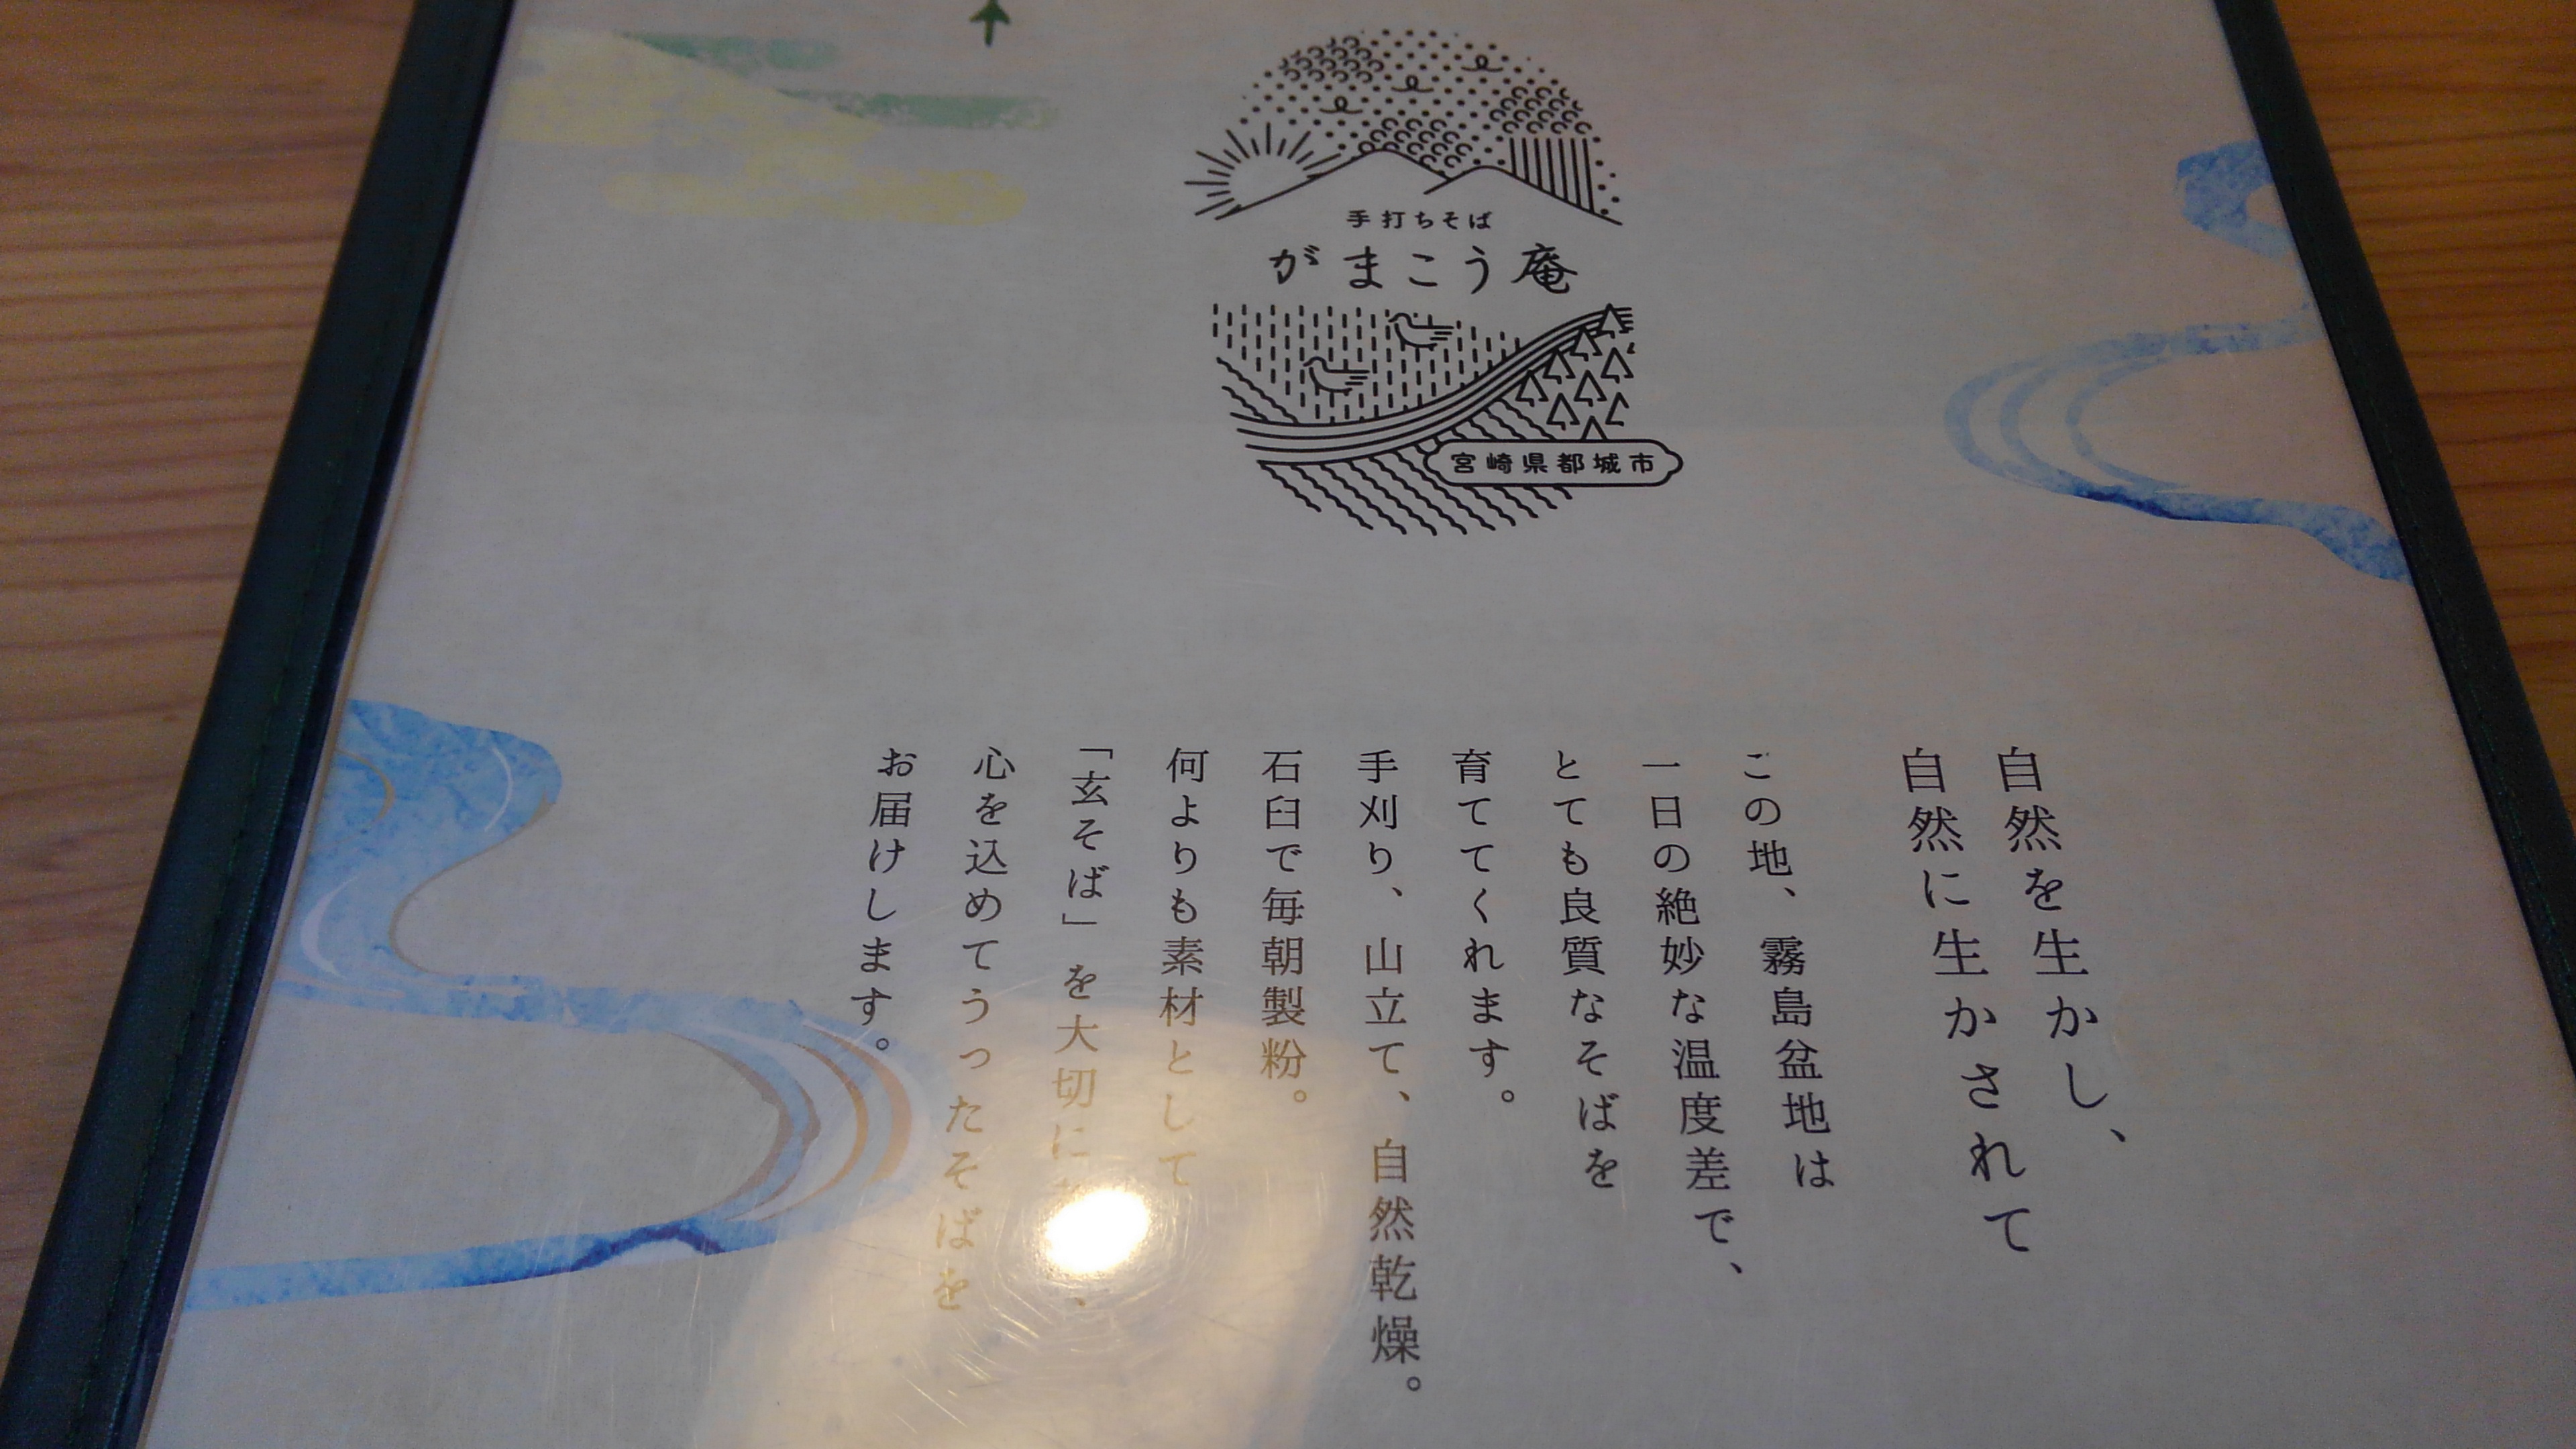 手打ちそば
がまこう庵
宮崎県都城市
自然を生かし、
自然に生かされて
この地、霧島盆地は
一日の絶妙な温度差で、
とても良質なそばを
育ててくれます。
手刈り、山立て、自然乾燥。
石臼で毎朝製粉。
何よりも素材として
「玄そば」を大切に、
心を込めてうったそばを
お届けします。